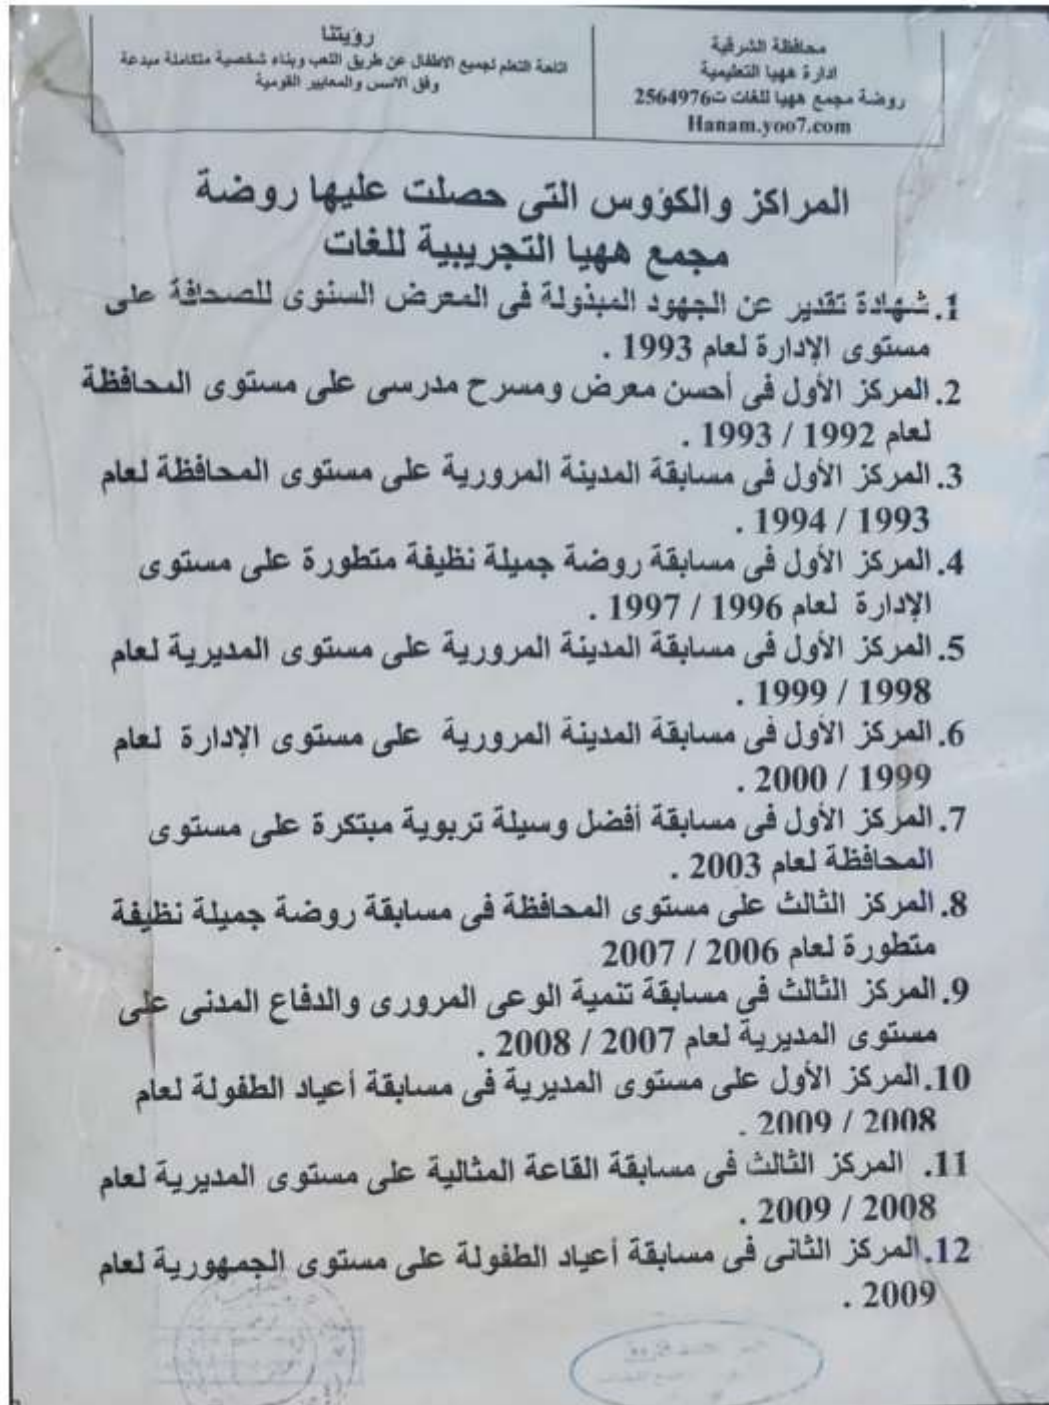 محافظة الشرقية
ادارة ههيا التعليمية
روضة مجمع ههيا للغات ت2564976
Hanam.yoo7.com
رؤيتنا
اتاحة التعلم لجميع الاطفال عن طريق اللعب وبناء شخصية متكاملة مبدعة
وفق الاسس والمعايير القومية
المراكز والكؤوس التى حصلت عليها روضة
مجمع ههيا التجريبية للغات
1. شهادة تقدير عن الجهود المبذولة فى المعرض السنوى للصحافة على
مستوى الإدارة لعام 1993 .
2. المركز الأول فى أحسن معرض ومسرح مدرسى على مستوى المحافظة
لعام 1992 / 1993 .
3. المركز الأول فى مسابقة المدينة المرورية على مستوى المحافظة لعام
1993 / 1994 .
4. المركز الأول فى مسابقة روضة جميلة نظيفة متطورة على مستوى
الإدارة لعام 1996 / 1997 .
5. المركز الأول فى مسابقة المدينة المرورية على مستوى المديرية لعام
1998 / 1999 .
6. المركز الأول فى مسابقة المدينة المرورية على مستوى الإدارة لعام
1999 / 2000 .
7. المركز الأول فى مسابقة أفضل وسيلة تربوية مبتكرة على مستوى
المحافظة لعام 2003 .
8. المركز الثالث على مستوى المحافظة فى مسابقة روضة جميلة نظيفة
متطورة لعام 2006 / 2007
9. المركز الثالث فى مسابقة تنمية الوعى المرورى والدفاع المدنى على
مستوى المديرية لعام 2007 / 2008 .
10. المركز الأول على مستوى المديرية فى مسابقة أعياد الطفولة لعام
2008 / 2009 .
11. المركز الثالث فى مسابقة القاعة المثالية على مستوى المديرية لعام
2008 / 2009 .
12. المركز الثانى فى مسابقة أعياد الطفولة على مستوى الجمهورية لعام
2009 .